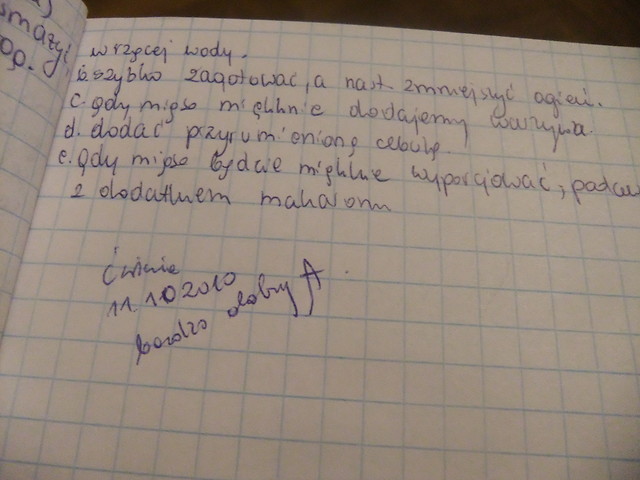 smażyć
w rzącej wody.
b. szybko zagotować, a nast. zmniejszyć ogień.
c. gdy mięso mięknie dodajemy warzywa.
d. dodać przyrumienioną cebulę.
e. gdy mięso będzie miękkie wyporcjować, podaw
z dodatkiem makaronu
11.10.2010
bardzo dobry A